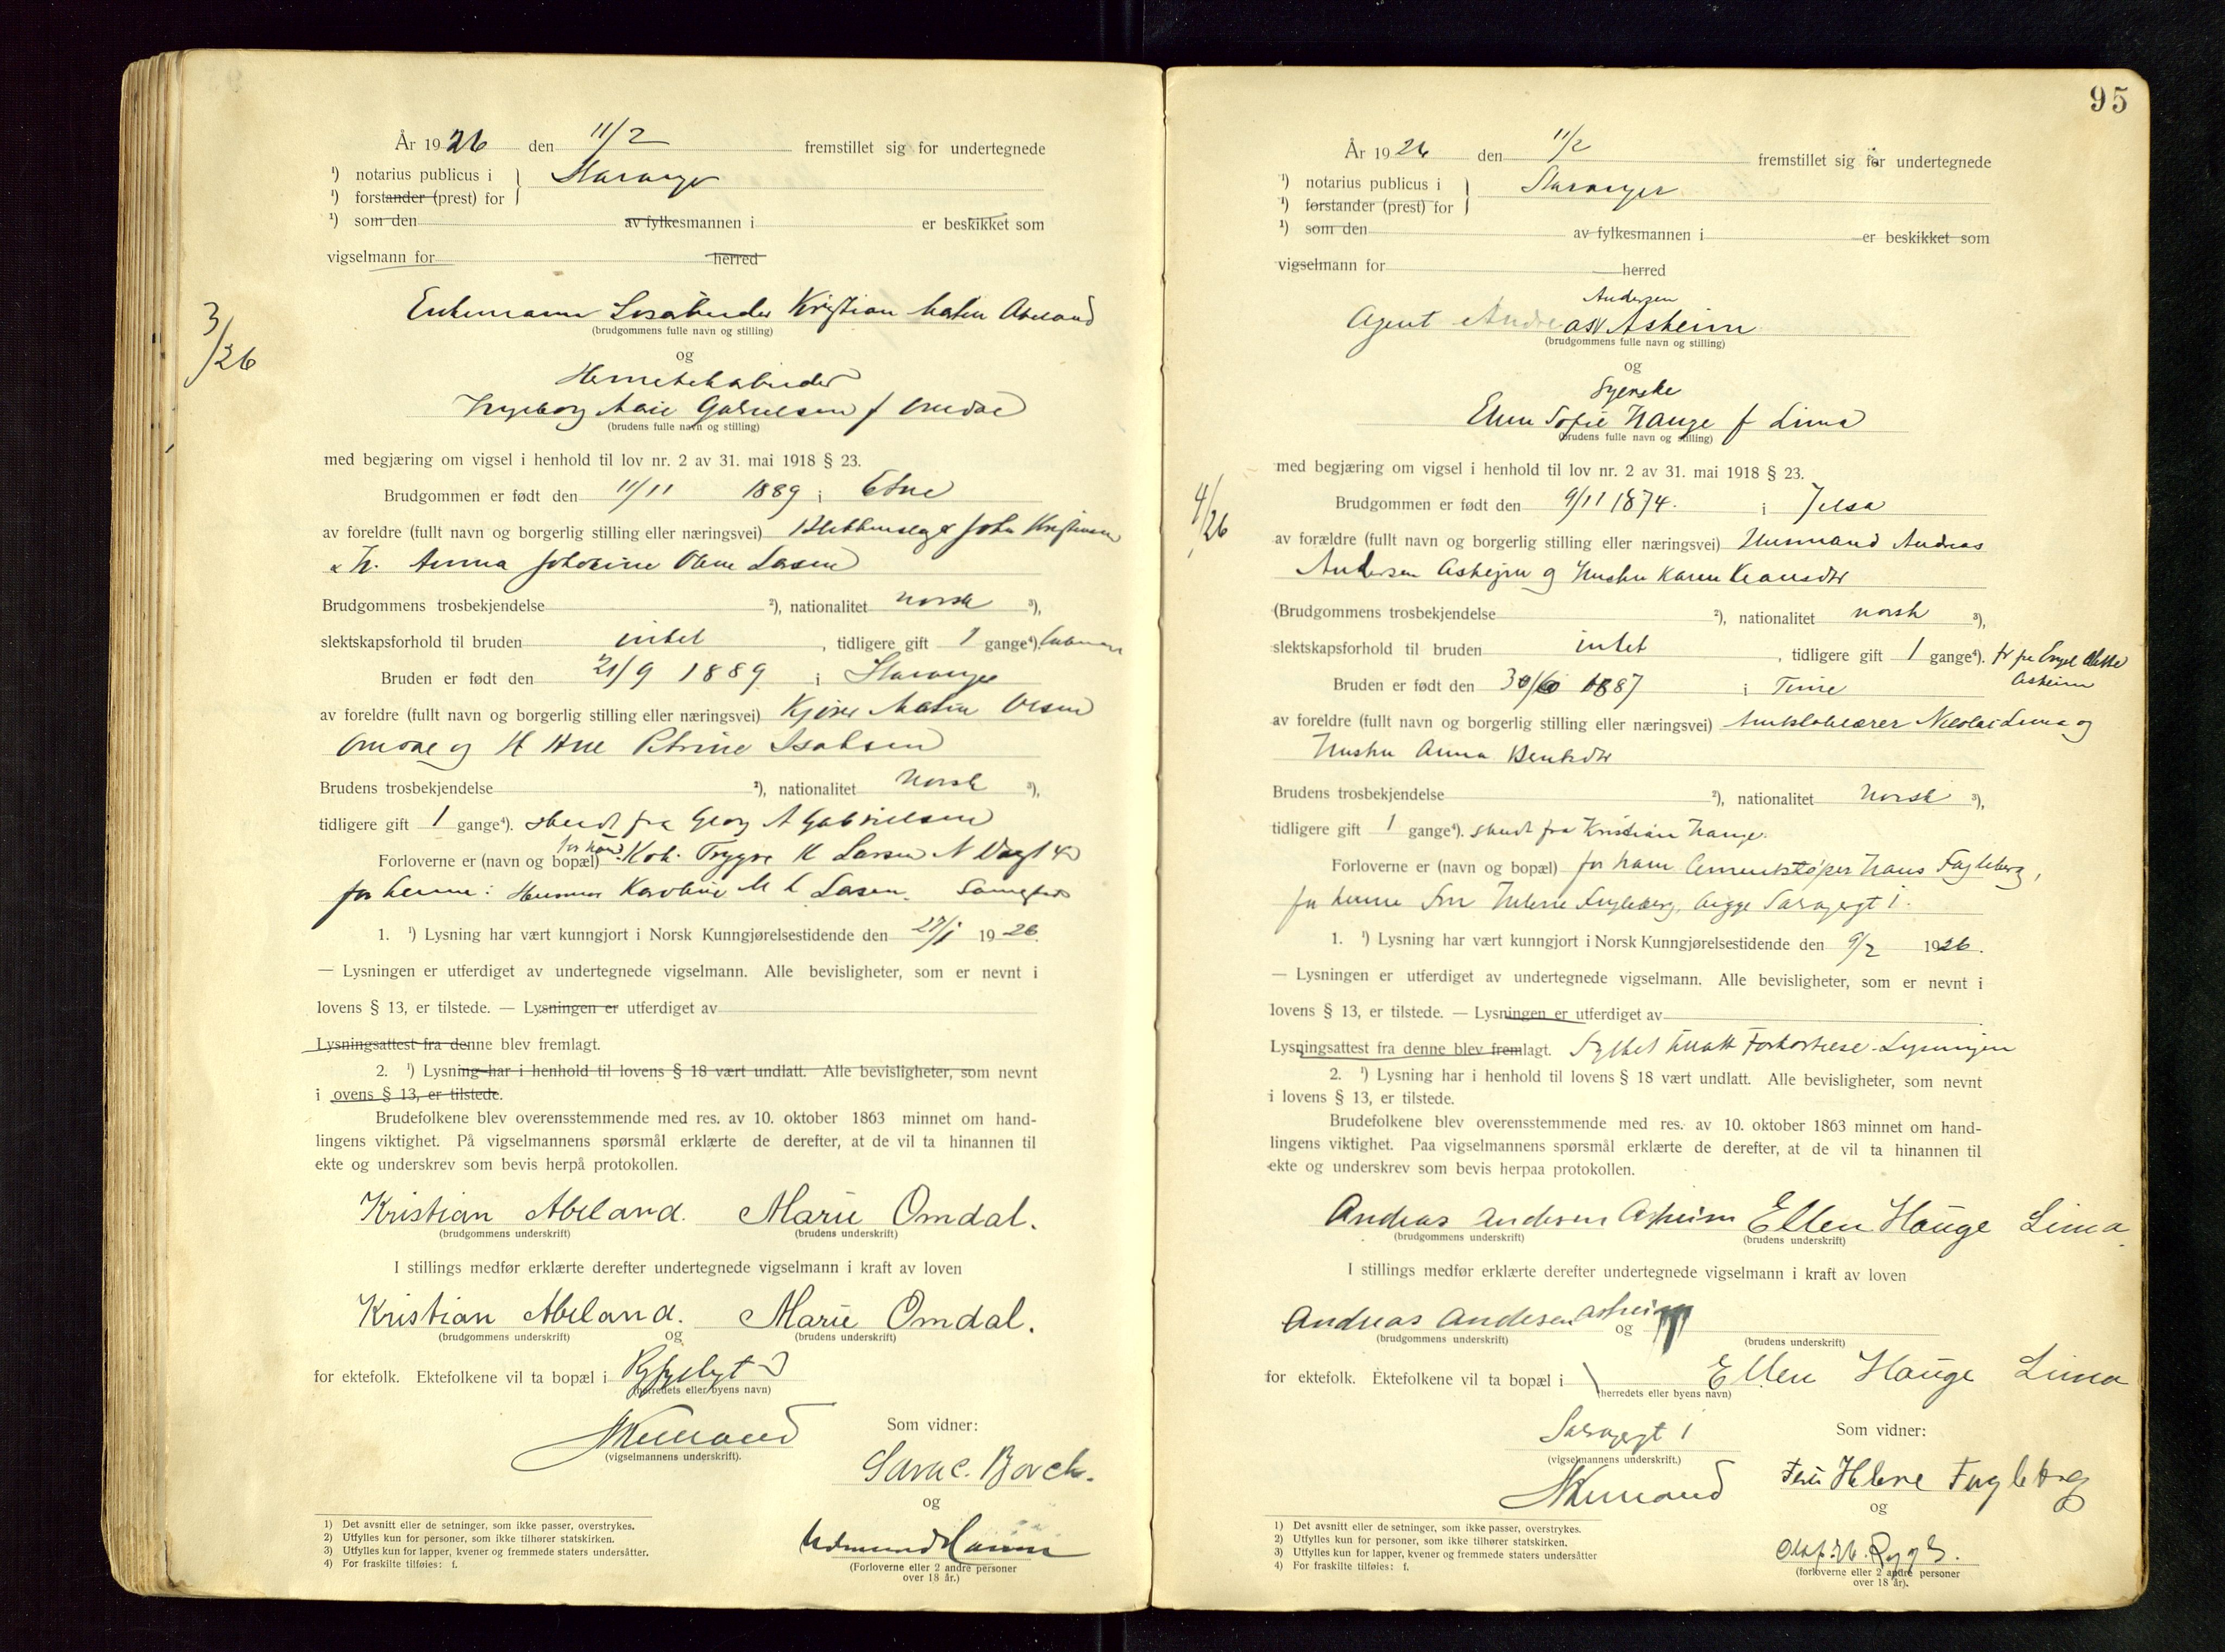 År 1926 den 11/2 fremstillet sig for undertegnede
¹) notarius publicus i Stavanger
¹) forstander (prest) for
¹) som den av fylkesmannen i er beskikket som
vigselmann for herred
3/26
Enkemann Kristian Martin Abeland
(brudgommens fulle navn og stilling)
og
Ingeborg Marie Gabrielsen f Omdal
(brudens fulle navn og stilling)
med begjæring om vigsel i henhold til lov nr. 2 av 31. mai 1918 § 23.
Brudgommen er født den 11/11 1889 i Etne
av foreldre (fullt navn og borgerlig stilling eller næringsvei) John Kristiansen
Anna Larsen
Brudgommens trosbekjendelse ²), nationalitet norsk ³),
slektskapsforhold til bruden intet, tidligere gift 1 gange⁴).
Bruden er født den 21/9 1889 i Stavanger
av foreldre (fullt navn og borgerlig stilling eller næringsvei) Martin Olsen
Omdal og Petrine Isaksen
Brudens trosbekjendelse ²), nationalitet Norsk ³),
tidligere gift 1 gange⁴). skilt fra Georg A Gabrielsen
Forloverne er (navn og bopæl) for ham: Trygve K Larsen
for henne: Karoline Larsen.
1. ¹) Lysning har vært kunngjort i Norsk Kunngjørelsestidende den 27/1 1926.
— Lysningen er utferdiget av undertegnede vigselmann. Alle bevisligheter, som er nevnt i
lovens § 13, er tilstede. — Lysningen er utferdiget av
Lysningsattest fra denne blev fremlagt.
2. ¹) Lysning har i henhold til lovens § 18 vært undlatt. Alle bevisligheter, som nevnt
i ovens § 13, er tilstede.
Brudefolkene blev overensstemmende med res. av 10. oktober 1863 minnet om hand-
lingens viktighet. På vigselmannens spørsmål erklærte de derefter, at de vil ta hinannen til
ekte og underskrev som bevis herpå protokollen.
Kristian Abeland. Marie Omdal.
(brudgommens underskrift) (brudens underskrift)
I stillings medfør erklærte derefter undertegnede vigselmann i kraft av loven
Kristian Abeland. Marie Omdal.
(brudgommens underskrift) og (brudens underskrift)
for ektefolk. Ektefolkene vil ta bopæl i
(herredets eller byens navn)
Som vidner:
(vigselmannens underskrift).
Sara C. Borch.
og
(Forloverne eller 2 andre personer
over 18 år.)
1) Det avsnitt eller de setninger, som ikke passer, overstrykes.
2) Utfylles kun for personer, som ikke tilhører statskirken.
3) Utfylles kun for lapper, kvener og fremmede staters undersåtter.
4) For fraskilte tilføies: f.
95
År 1926 den 11/2 fremstillet sig for undertegnede
¹) notarius publicus i Stavanger
¹) forstander (prest) for
¹) som den av fylkesmannen i er beskikket som
vigselmann for herred
Andersen
Agent Andreas Asheim
(brudgommens fulle navn og stilling)
og
Syerske
Ellen Sofie Hauge f Lima
(brudens fulle navn og stilling)
med begjæring om vigsel i henhold til lov nr. 2 av 31. mai 1918 § 23.
4/26
Brudgommen er født den 9/11 1874. i Jelsa
av forældre (fullt navn og borgerlig stilling eller næringsvei) Husmand Andreas
Andersen Asheim og Hustru Karen
(Brudgommens trosbekjendelse ²), nationalitet norsk ³),
slektskapsforhold til bruden intet, tidligere gift 1 gange⁴). Asheim
Bruden er født den 1887 i Time
av foreldre (fullt navn og borgerlig stilling eller næringsvei) Nicolai Lima og
Hustru Anna
Brudens trosbekjendelse ²), nationalitet Norsk ³),
tidligere gift 1 gange⁴). skilt fra Kristian Hauge.
Forloverne er (navn og bopæl) for ham Cementstøper Hans Fugleberg,
for henne Fru Helene Fugleberg, begge
1. ¹) Lysning har vært kunngjort i Norsk Kunngjørelsestidende den 9/2 1926.
— Lysningen er utferdiget av undertegnede vigselmann. Alle bevisligheter, som er nevnt i
lovens § 13, er tilstede. — Lysningen er utferdiget av
Lysningsattest fra denne blev fremlagt.
2. ¹) Lysning har i henhold til lovens § 18 vært undlatt. Alle bevisligheter, som nevnt
i lovens § 13, er tilstede.
Brudefolkene blev overensstemmende med res. av 10. oktober 1863 minnet om hand-
lingens viktighet. Paa vigselmannens spørsmål erklærte de derefter, at de vil ta hinannen til
ekte og underskrev som bevis herpaa protokollen.
Andreas Andersen Asheim Ellen Hauge Lima
(brudgommens underskrift) (brudens underskrift)
I stillings medfør erklærte derefter undertegnede vigselmann i kraft av loven
Andreas Andersen Asheim
(brudgommens underskrift) og (brudens underskrift)
for ektefolk. Ektefolkene vil ta bopæl i Ellen Hauge Lima
(herredets eller byens navn)
Som vidner:
(vigselmannens underskrift.)
Fru Helene Fugleberg
og
(forloverne eller 2 andre personer
over 18 år).
1) Det avsnitt eller de setninger, som ikke passer, overstrykes.
2) Utfylles kun for personer, som ikke tilhører statskirken.
3) Utfylles kun for lapper, kvener og fremmede staters undersåtter
4) For fraskilte tilføies: f.